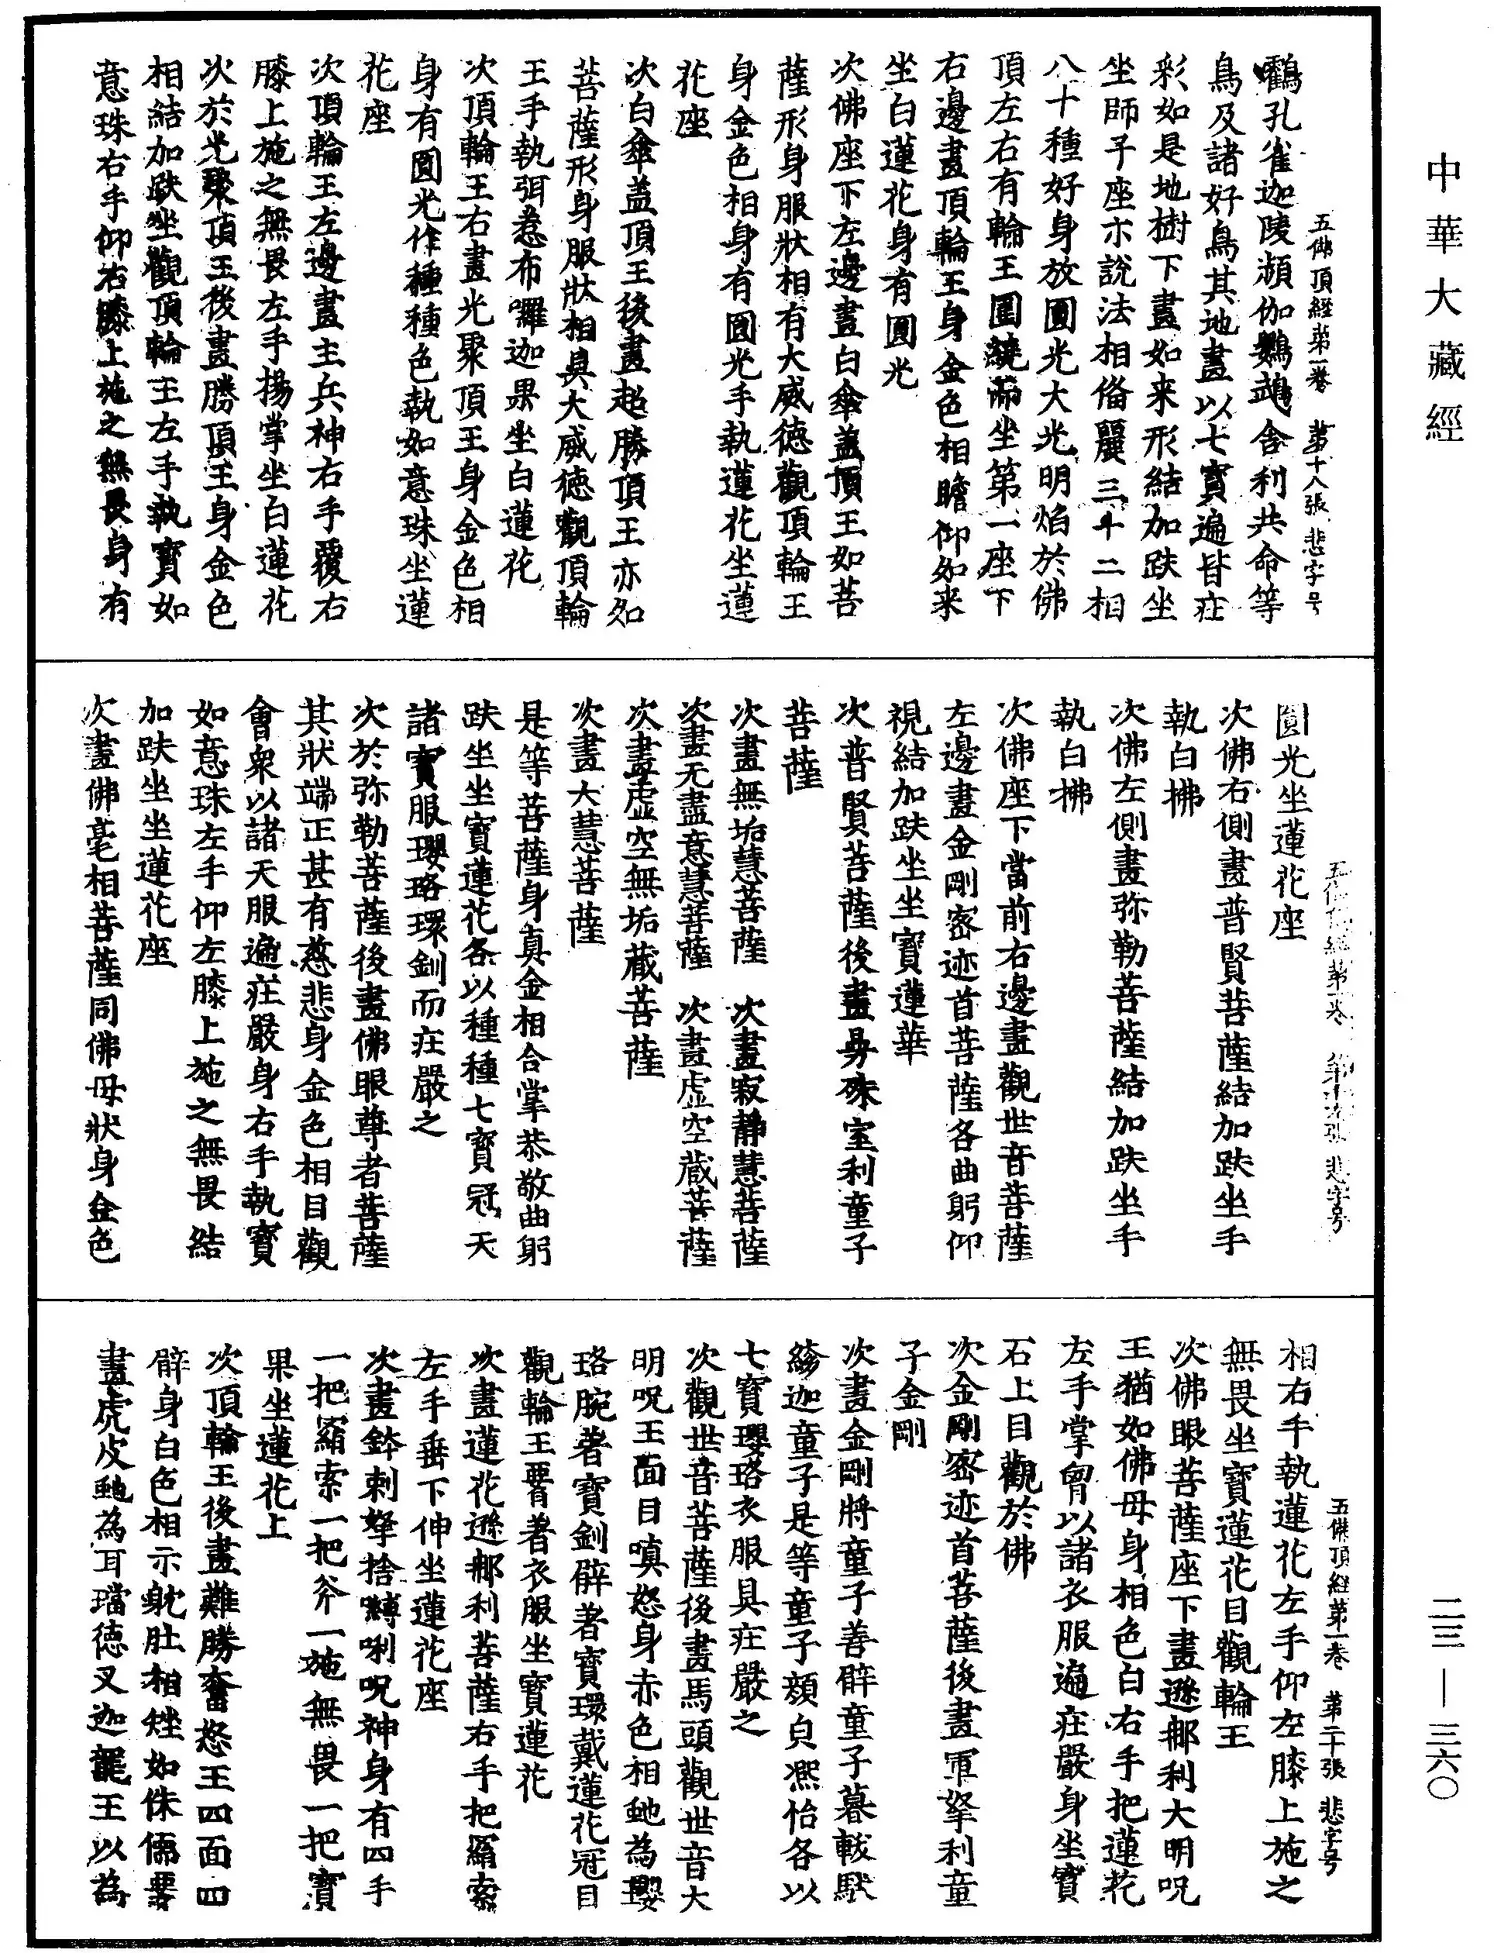 中華大藏經
二三—三六〇
五佛頂經第一卷　第十八張　悲字号
鸖孔雀迦陵頻伽鸚鵡舍利共命等
鳥及諸好鳥其地畫以七寶遍皆庄
彩如是地樹下畫如来形結加趺坐
坐師子座示說法相俻麗三十二相
八十種好身放圓光大光明焰於佛
頂左右有輪王圍繞而坐第一座下
右邊畫頂輪王身金色相瞻仰如来
坐白蓮花身有圓光
次佛座下左邊畫白傘盖頂王如菩
薩形身服狀相有大威德觀頂輪王
身金色相身有圓光手執蓮花坐蓮
花座
次白傘盖頂王後畫超勝頂王亦如
菩薩形身服狀相具大威德觀頂輪
王手執弭惹布囉迦果坐白蓮花
次頂輪王右畫光聚頂王身金色相
身有圓光作種種色執如意珠坐蓮
花座
次頂輪王左邊畫主兵神右手覆右
膝上施之無畏左手揚掌坐白蓮花
次於光聚頂王後畫勝頂王身金色
相結加趺坐觀頂輪王左手執寶如
意珠右手仰右膝上施之無畏身有
五佛頂經第一卷　第十九張　悲字号
圓光坐蓮花座
次佛右側畫普賢菩薩結加趺坐手
執白拂
次佛左側畫弥勒菩薩結加趺坐手
執白拂
次佛座下當前右邊畫觀世音菩薩
左邊畫金剛密迹首菩薩各曲躬仰
視結加趺坐坐寶蓮華
次普賢菩薩後畫曼殊室利童子
菩薩
次畫無垢慧菩薩　次畫寂靜慧菩薩
次畫无盡意慧菩薩　次畫虛空藏菩薩
次畫虛空無垢藏菩薩
次畫大慧菩薩
是等菩薩身真金相合掌恭敬曲躬
趺坐坐寶蓮花各以種種七寶冠天
諸寶服瓔珞環釧而庄嚴之
次於弥勒菩薩後畫佛眼尊者菩薩
其狀端正甚有慈悲身金色相目觀
會衆以諸天服遍庄嚴身右手執寶
如意珠左手仰左膝上施之無畏結
加趺坐坐蓮花座
次畫佛毫相菩薩同佛母狀身金色
五佛頂經第一卷　第二十張　悲字号
相右手執蓮花左手仰左膝上施之
無畏坐寶蓮花目觀輪王
次佛眼菩薩座下畫遜那利大明呪
王猶如佛母身相色白右手把蓮花
左手掌曾以諸衣服遍庄嚴身坐寶
石上目觀於佛
次金剛密迹首菩薩後畫軍拏利童
子金剛
次畫金剛將童子善臂童子暮䩭馱
縿迦童子是等童子顏皃凞怡各以
七寶瓔珞衣服具庄嚴之
次觀世音菩薩後畫馬頭觀世音大
明呪王面目嗔怒身赤色相虵為瓔
珞腕著寶釧臂著寶環戴蓮花冠目
觀輪王要胥著衣服坐寶蓮花
次畫蓮花遜那利菩薩右手把羂索
左手垂下伸坐蓮花座
次畫鉢剌拏捨嚩唎呪神身有四手
一把羂索一把斧一施無畏一把寶
果坐蓮花上
次頂輪王後畫難勝奮怒王四面四
臂身白色相示躭肚相矬如侏儒要
畫虎皮虵為耳璫德叉迦龍王以為